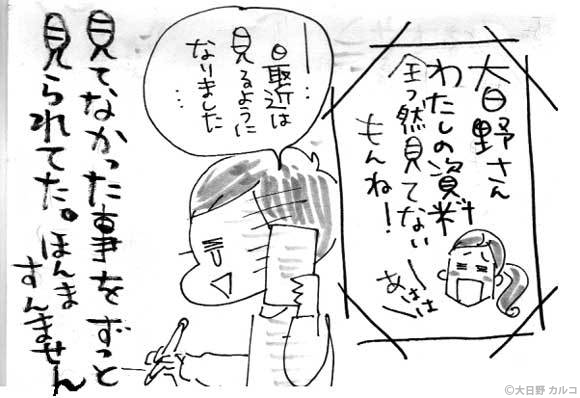 大日野さん
わたしの資料
全っ然見てない
もんね!
あはは
…最近は
見るように
なりました…
見て、なかった事をずっと
見られてた。ほんま
すんません
©大日野 カルコ